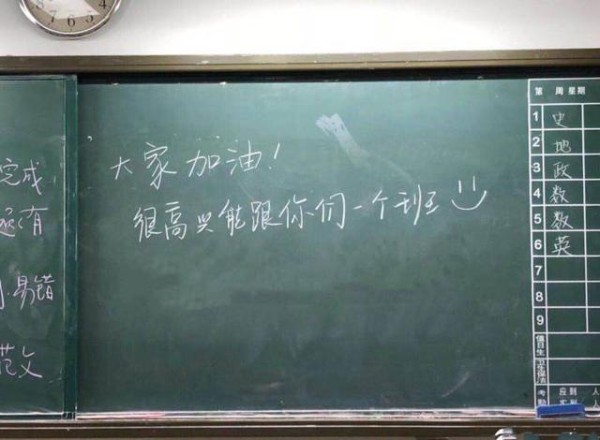 完成
有
易错
范文
大家加油!
很高兴能跟你们一个班
第 周 星期
1 史
2 地
3 政
4 数
5 数
6 英
7
8
9
值日生
卫生保洁
考勤 应到 人
实到 人